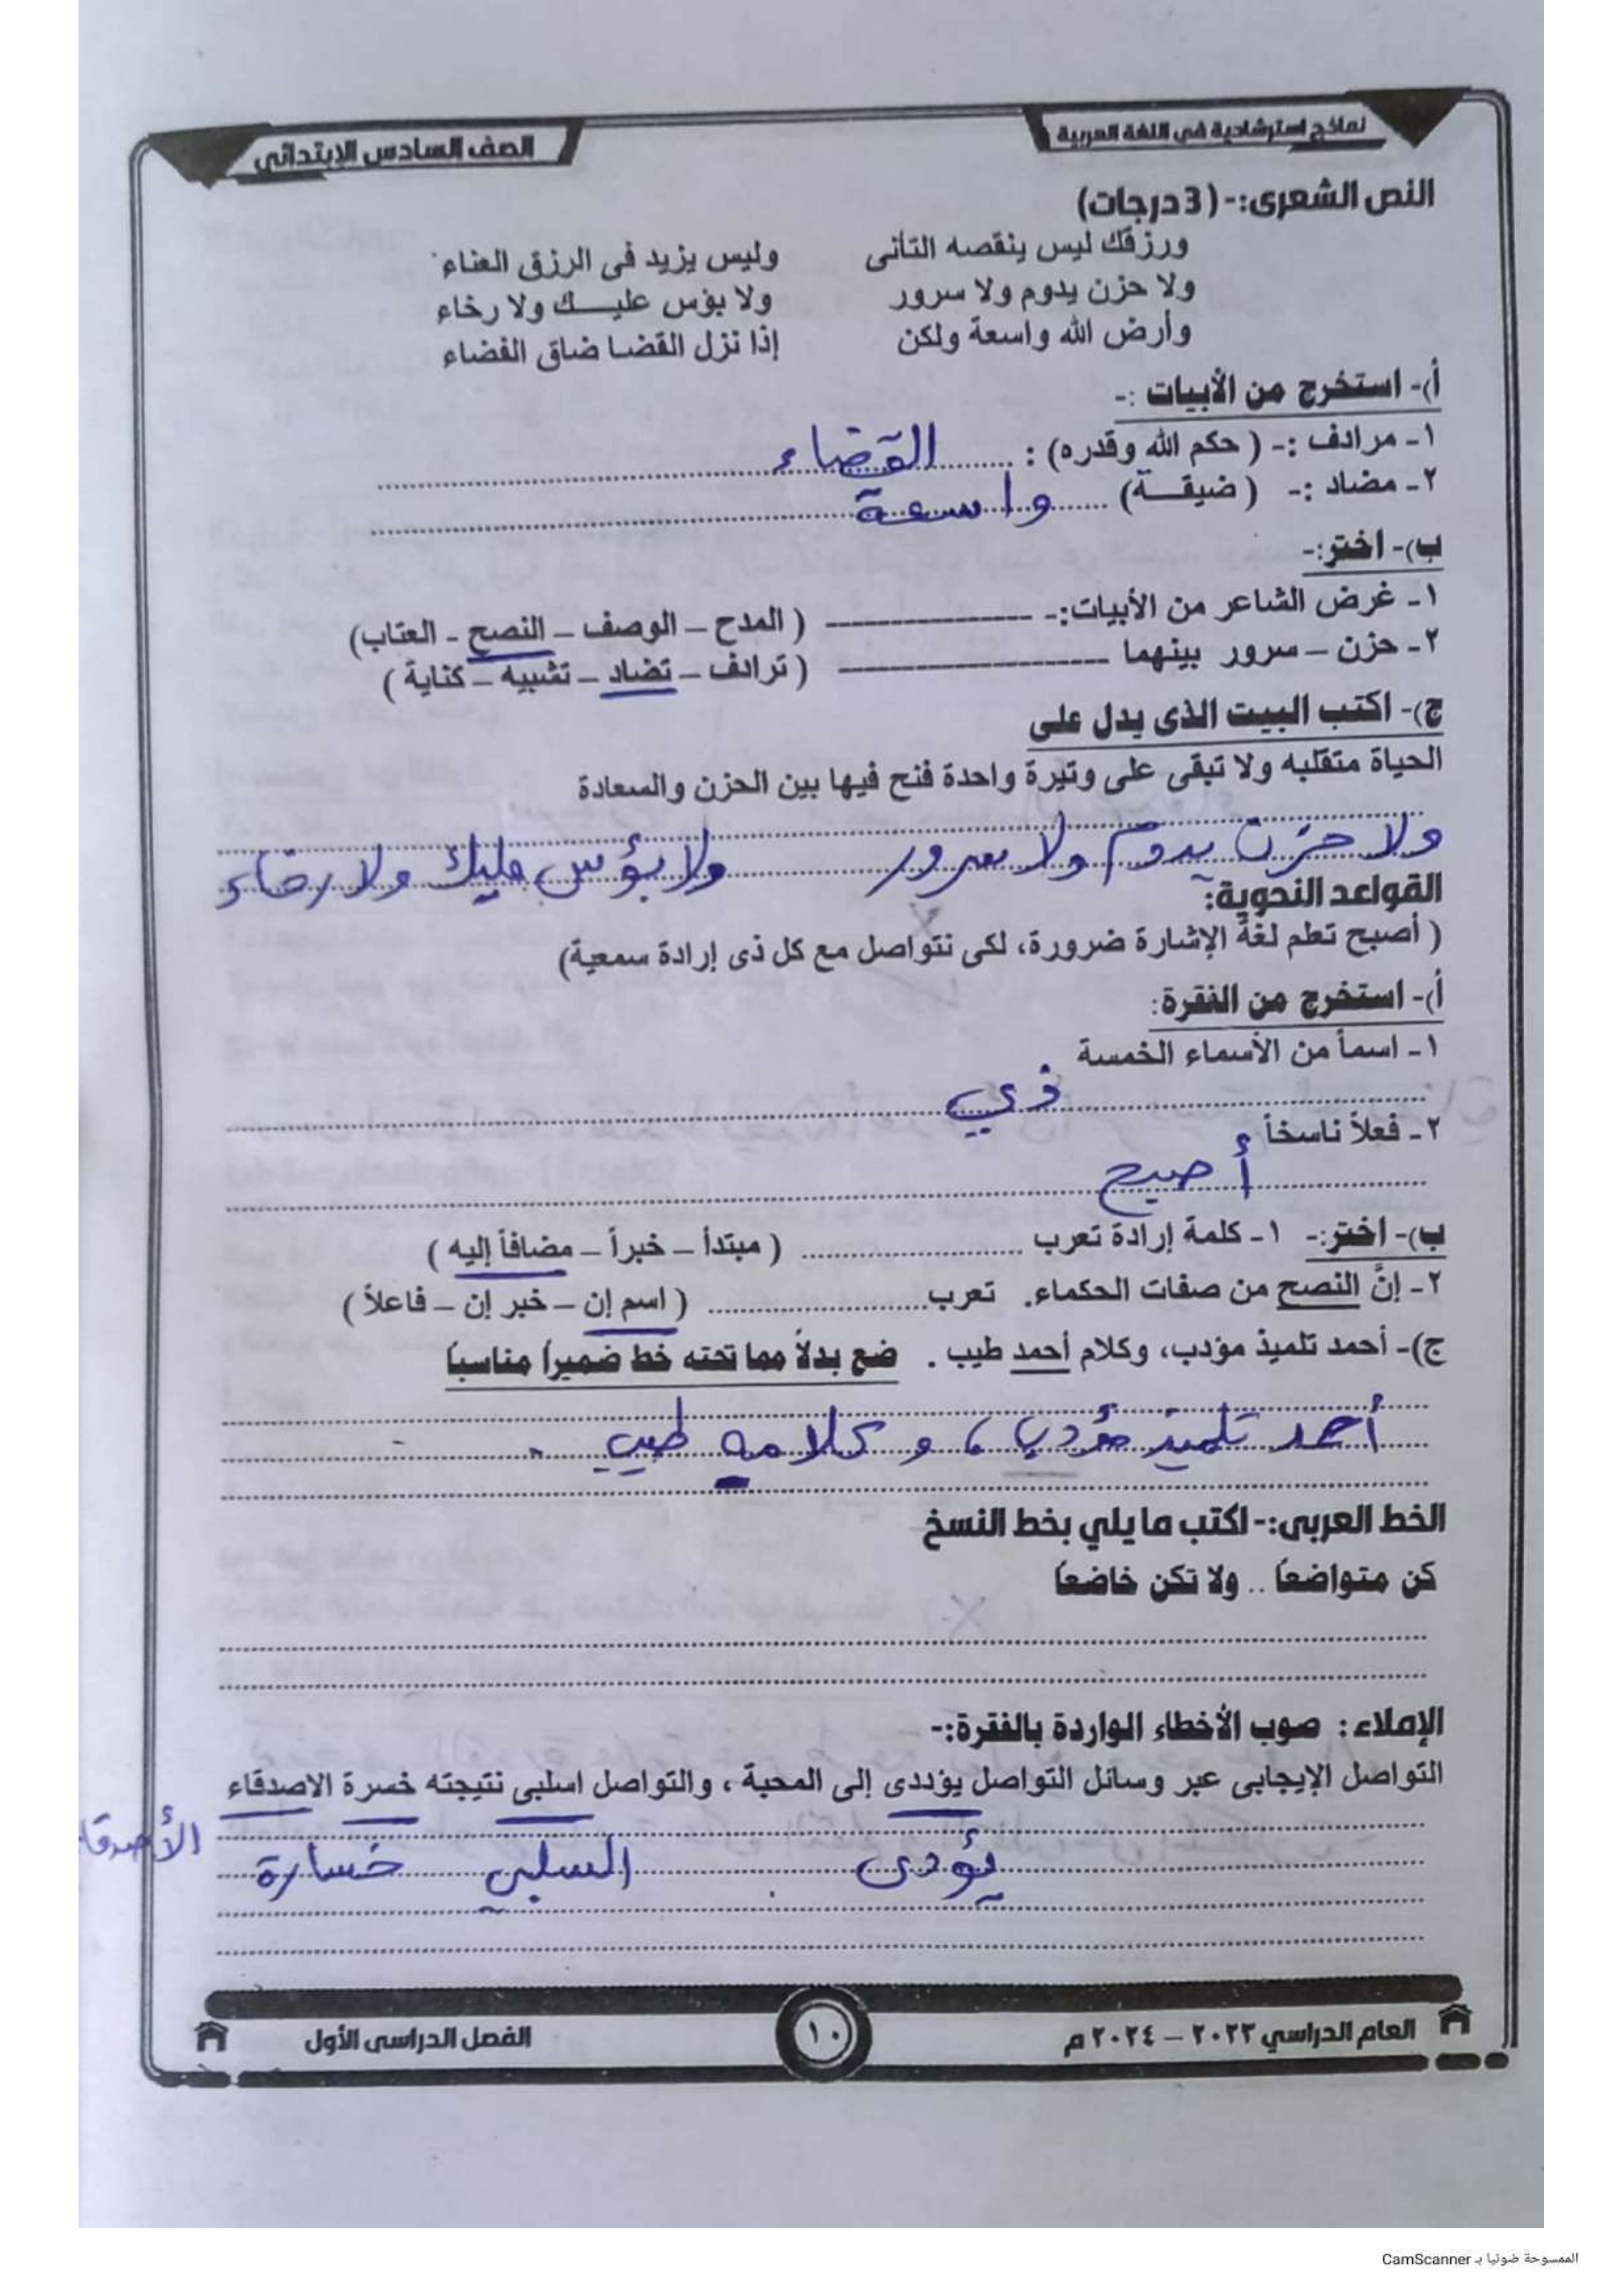 نماذج استرشادية في اللغة العربية
الصف السادس الابتدائي
النص الشعرى:- (3 درجات)
ورزقك ليس ينقصه التأنى وليس يزيد فى الرزق العناء
ولا حزن يدوم ولا سرور ولا بؤس عليـــك ولا رخاء
وأرض الله واسعة ولكن إذا نزل القضا ضاق الفضاء
أ)- استخرج من الأبيات :-
١- مرادف :- ( حكم الله وقدره) : القضاء
٢- مضاد :- ( ضيقـــة) واسعة
ب)- اختر:-
١- غرض الشاعر من الأبيات:- ( المدح – الوصف – النصح - العتاب)
٢- حزن – سرور بينهما ( ترادف – تضاد – تشبيه – كناية )
ج)- اكتب البيت الذى يدل على
الحياة متقلبه ولا تبقى على وتيرة واحدة فنح فيها بين الحزن والسعادة
ولا حزن يدوم ولا سرور ولا بؤس عليك ولا رخاء
القواعد النحوية:
( أصبح تعلم لغة الإشارة ضرورة، لكى نتواصل مع كل ذى إرادة سمعية)
أ)- استخرج من الفقرة:
١- اسماً من الأسماء الخمسة
ذي
٢- فعلاً ناسخاً
أصبح
ب)- اختر:- ١- كلمة إرادة تعرب ( مبتدأ – خبراً – مضافاً إليه )
٢- إنَّ النصح من صفات الحكماء. تعرب ( اسم إن – خبر إن – فاعلاً )
ج)- أحمد تلميذ مؤدب، وكلام أحمد طيب . ضع بدلاً مما تحته خط ضميراً مناسبا
أحمد تلميذ مؤدب ، و كلامه طيب .
الخط العربى:- اكتب ما يلي بخط النسخ
كن متواضعاً .. ولا تكن خاضعاً
الإملاء : صوب الأخطاء الواردة بالفقرة:-
التواصل الإيجابى عبر وسائل التواصل يؤددى إلى المحبة ، والتواصل اسلبى نتيجته خسرة الاصدقاء
يؤدى السلبي خسارة الأصدقا
العام الدراسي ٢٠٢٣ – ٢٠٢٤ م
١٠
الفصل الدراسى الأول
الممسوحة ضوئيا بـ CamScanner